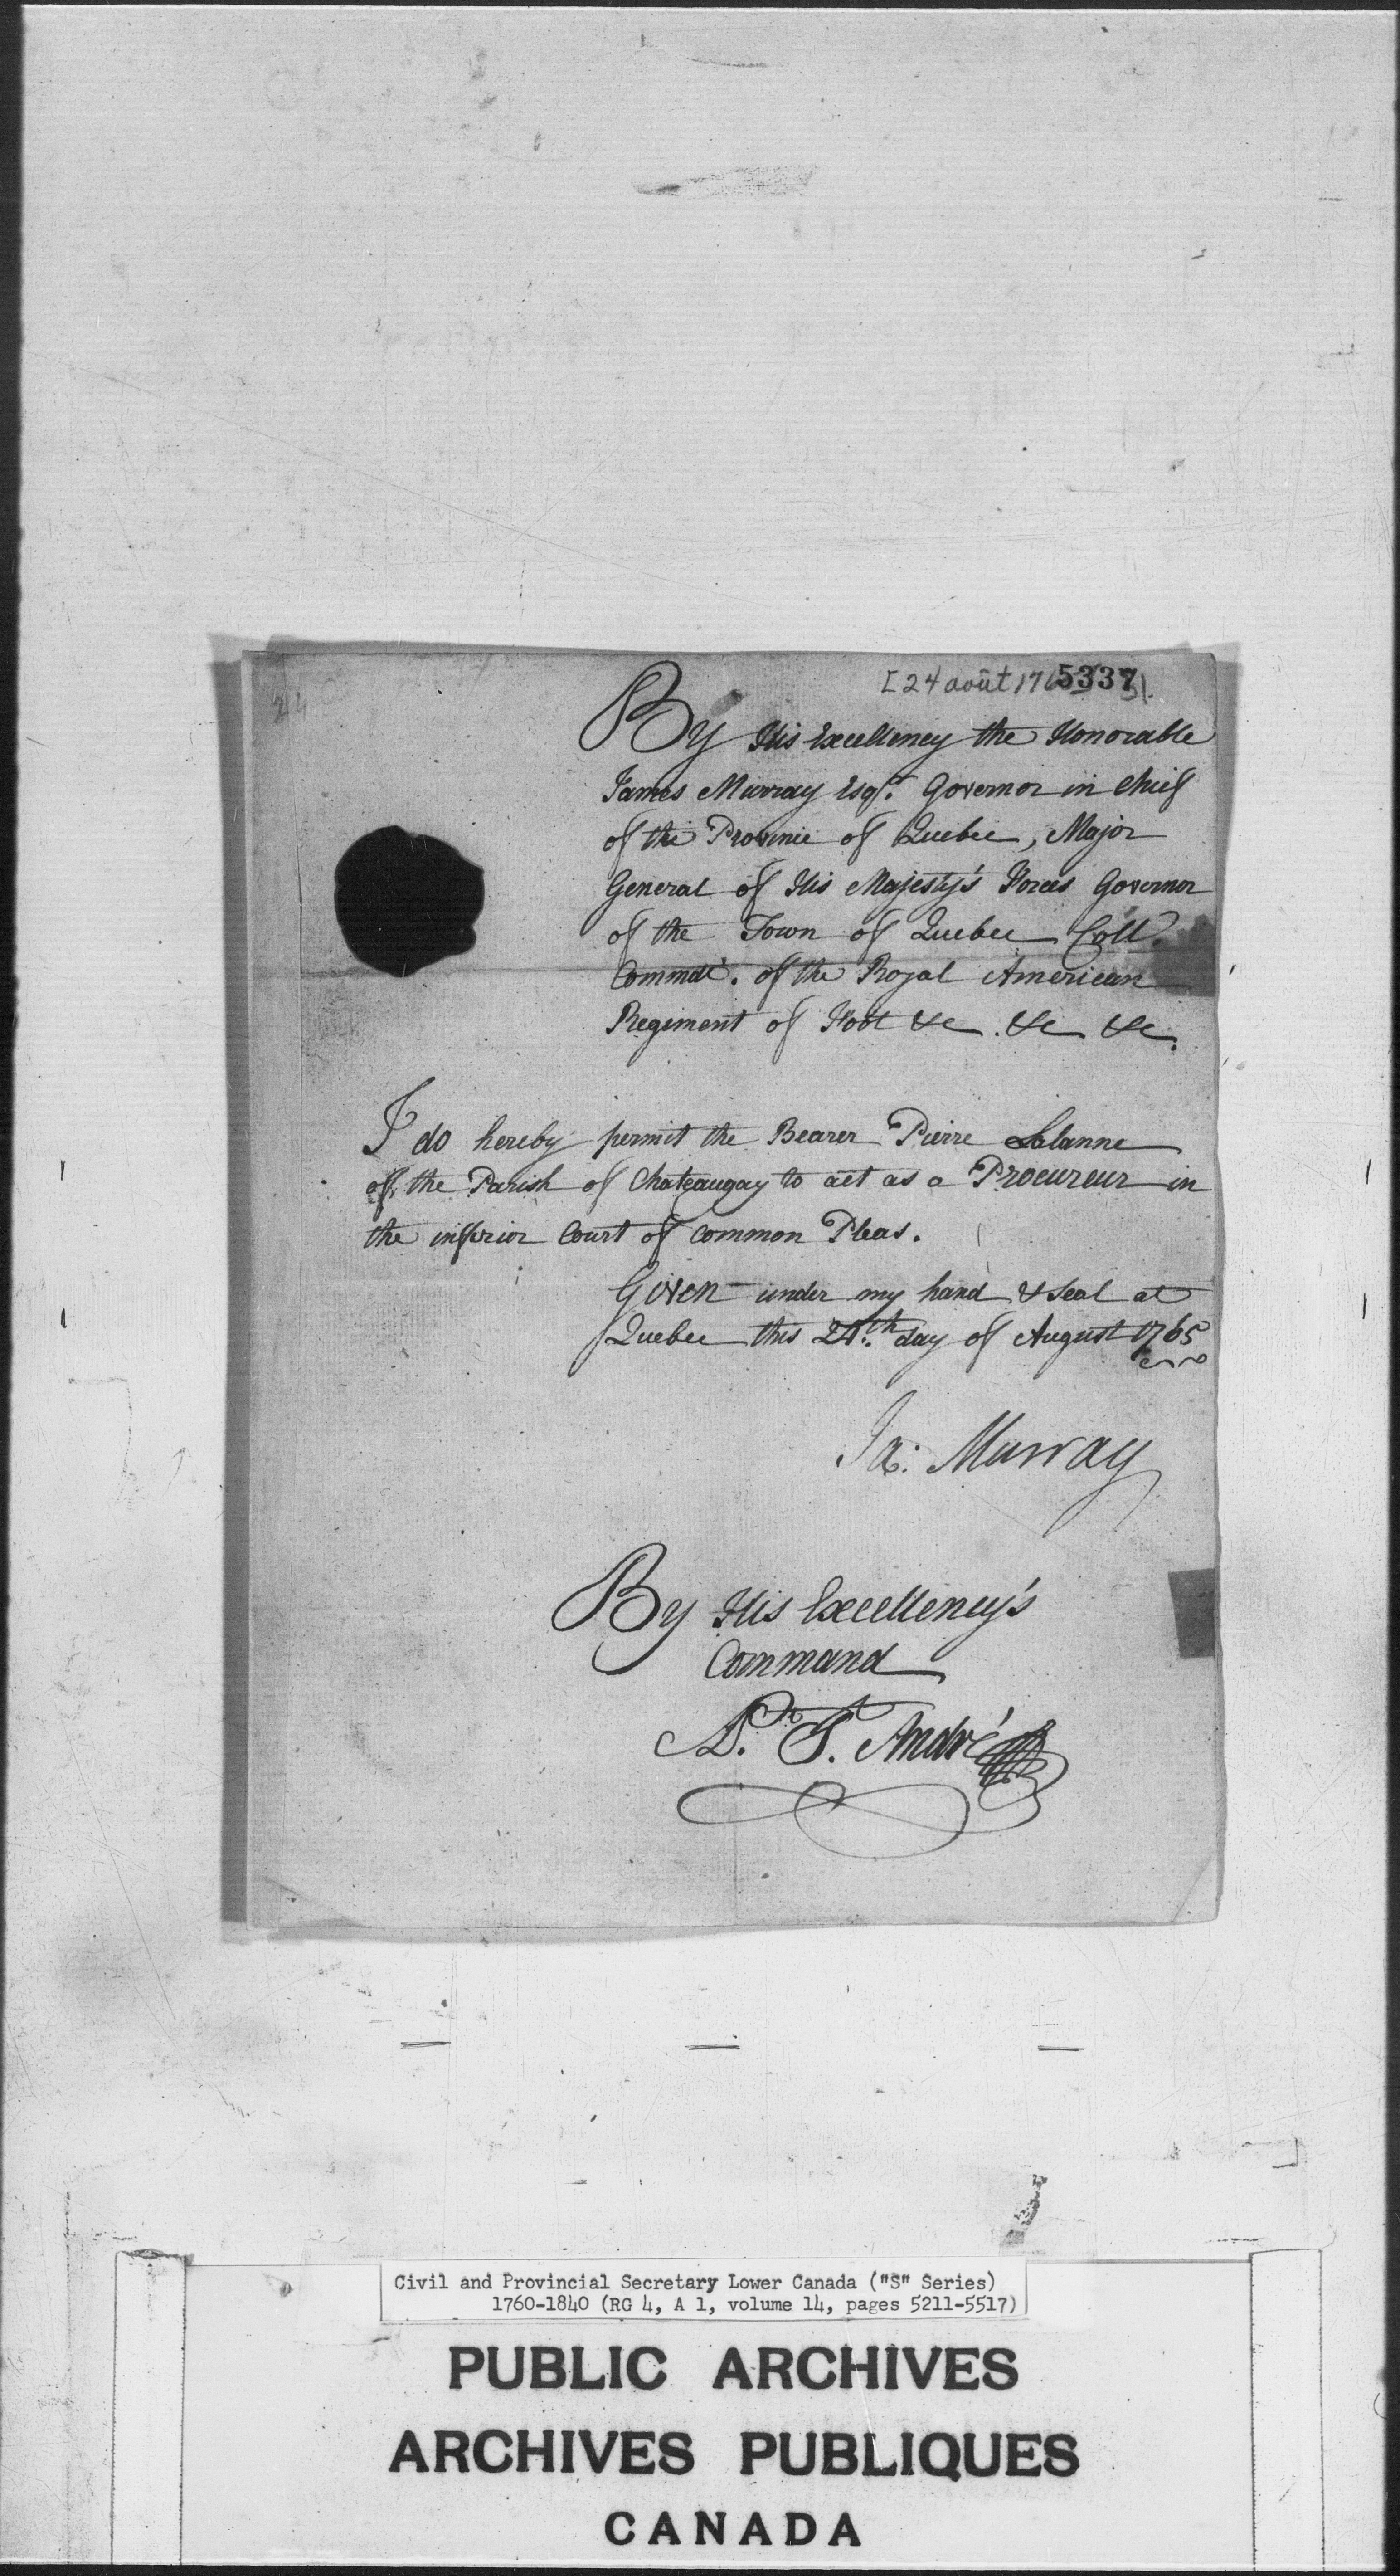 24
[24 août 176
5337
By His Excellency the Honorable
James Murray Esqr. Governor in Chief
of the Province of Quebec, Major
General of His Majesty's Forces Governor
of the Town of Quebec Coll.
Commdt. of the Royal American
Regiment of Foot &c &c &c.
I do hereby permit the Bearer Pierre Lalanne
of the Parish of Chateaugay to act as a Procureur in
the inferior Court of Common Pleas.
Given under my hand & Seal at
Quebec this 24th. day of August 1765
Ja: Murray
By His Excellency's
Command
P. T. André
Civil and Provincial Secretary Lower Canada ("S" Series)
1760-1840 (RG 4, A 1, volume 14, pages 5211-5517)
PUBLIC ARCHIVES
ARCHIVES PUBLIQUES
CANADA